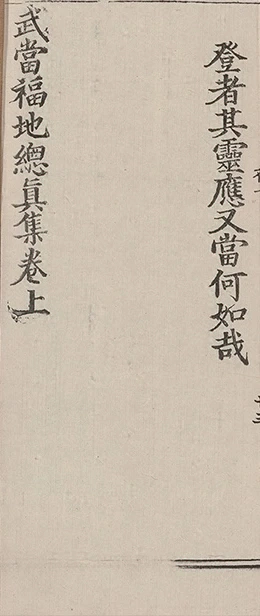 登者其靈應又當何如哉
武當福地總眞集卷上